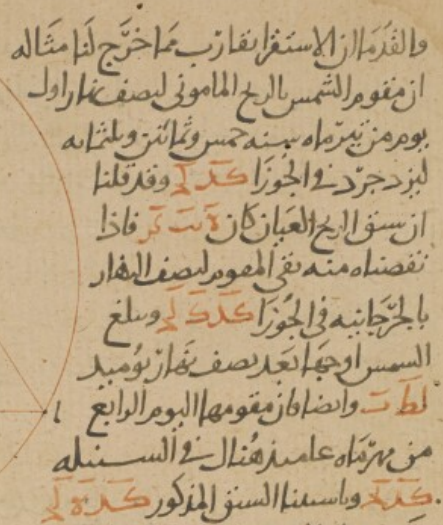 والقدما ان الاستقرا يقارب مما خرج لنا مثاله
ان مقوم الشمس بالزيج الماموني لنصف نهار اول
يوم من تيرماه سنه خمس وثمانين وثلثمايه
ليزدجرد في الجوزا كد لح وقد قلنا
ان سبق الزيج العيان كان فاذا
نقصناه منه بقي المقوم لنصف النهار
بالجرجانيه في الجوزا كد لح وبلغ
الشمس اوجها بعد نصف نهار يوميد
وايضا فان مقومها اليوم الرابع
من مهرماه عاميذ هناك في السنبله
السبق المذكور